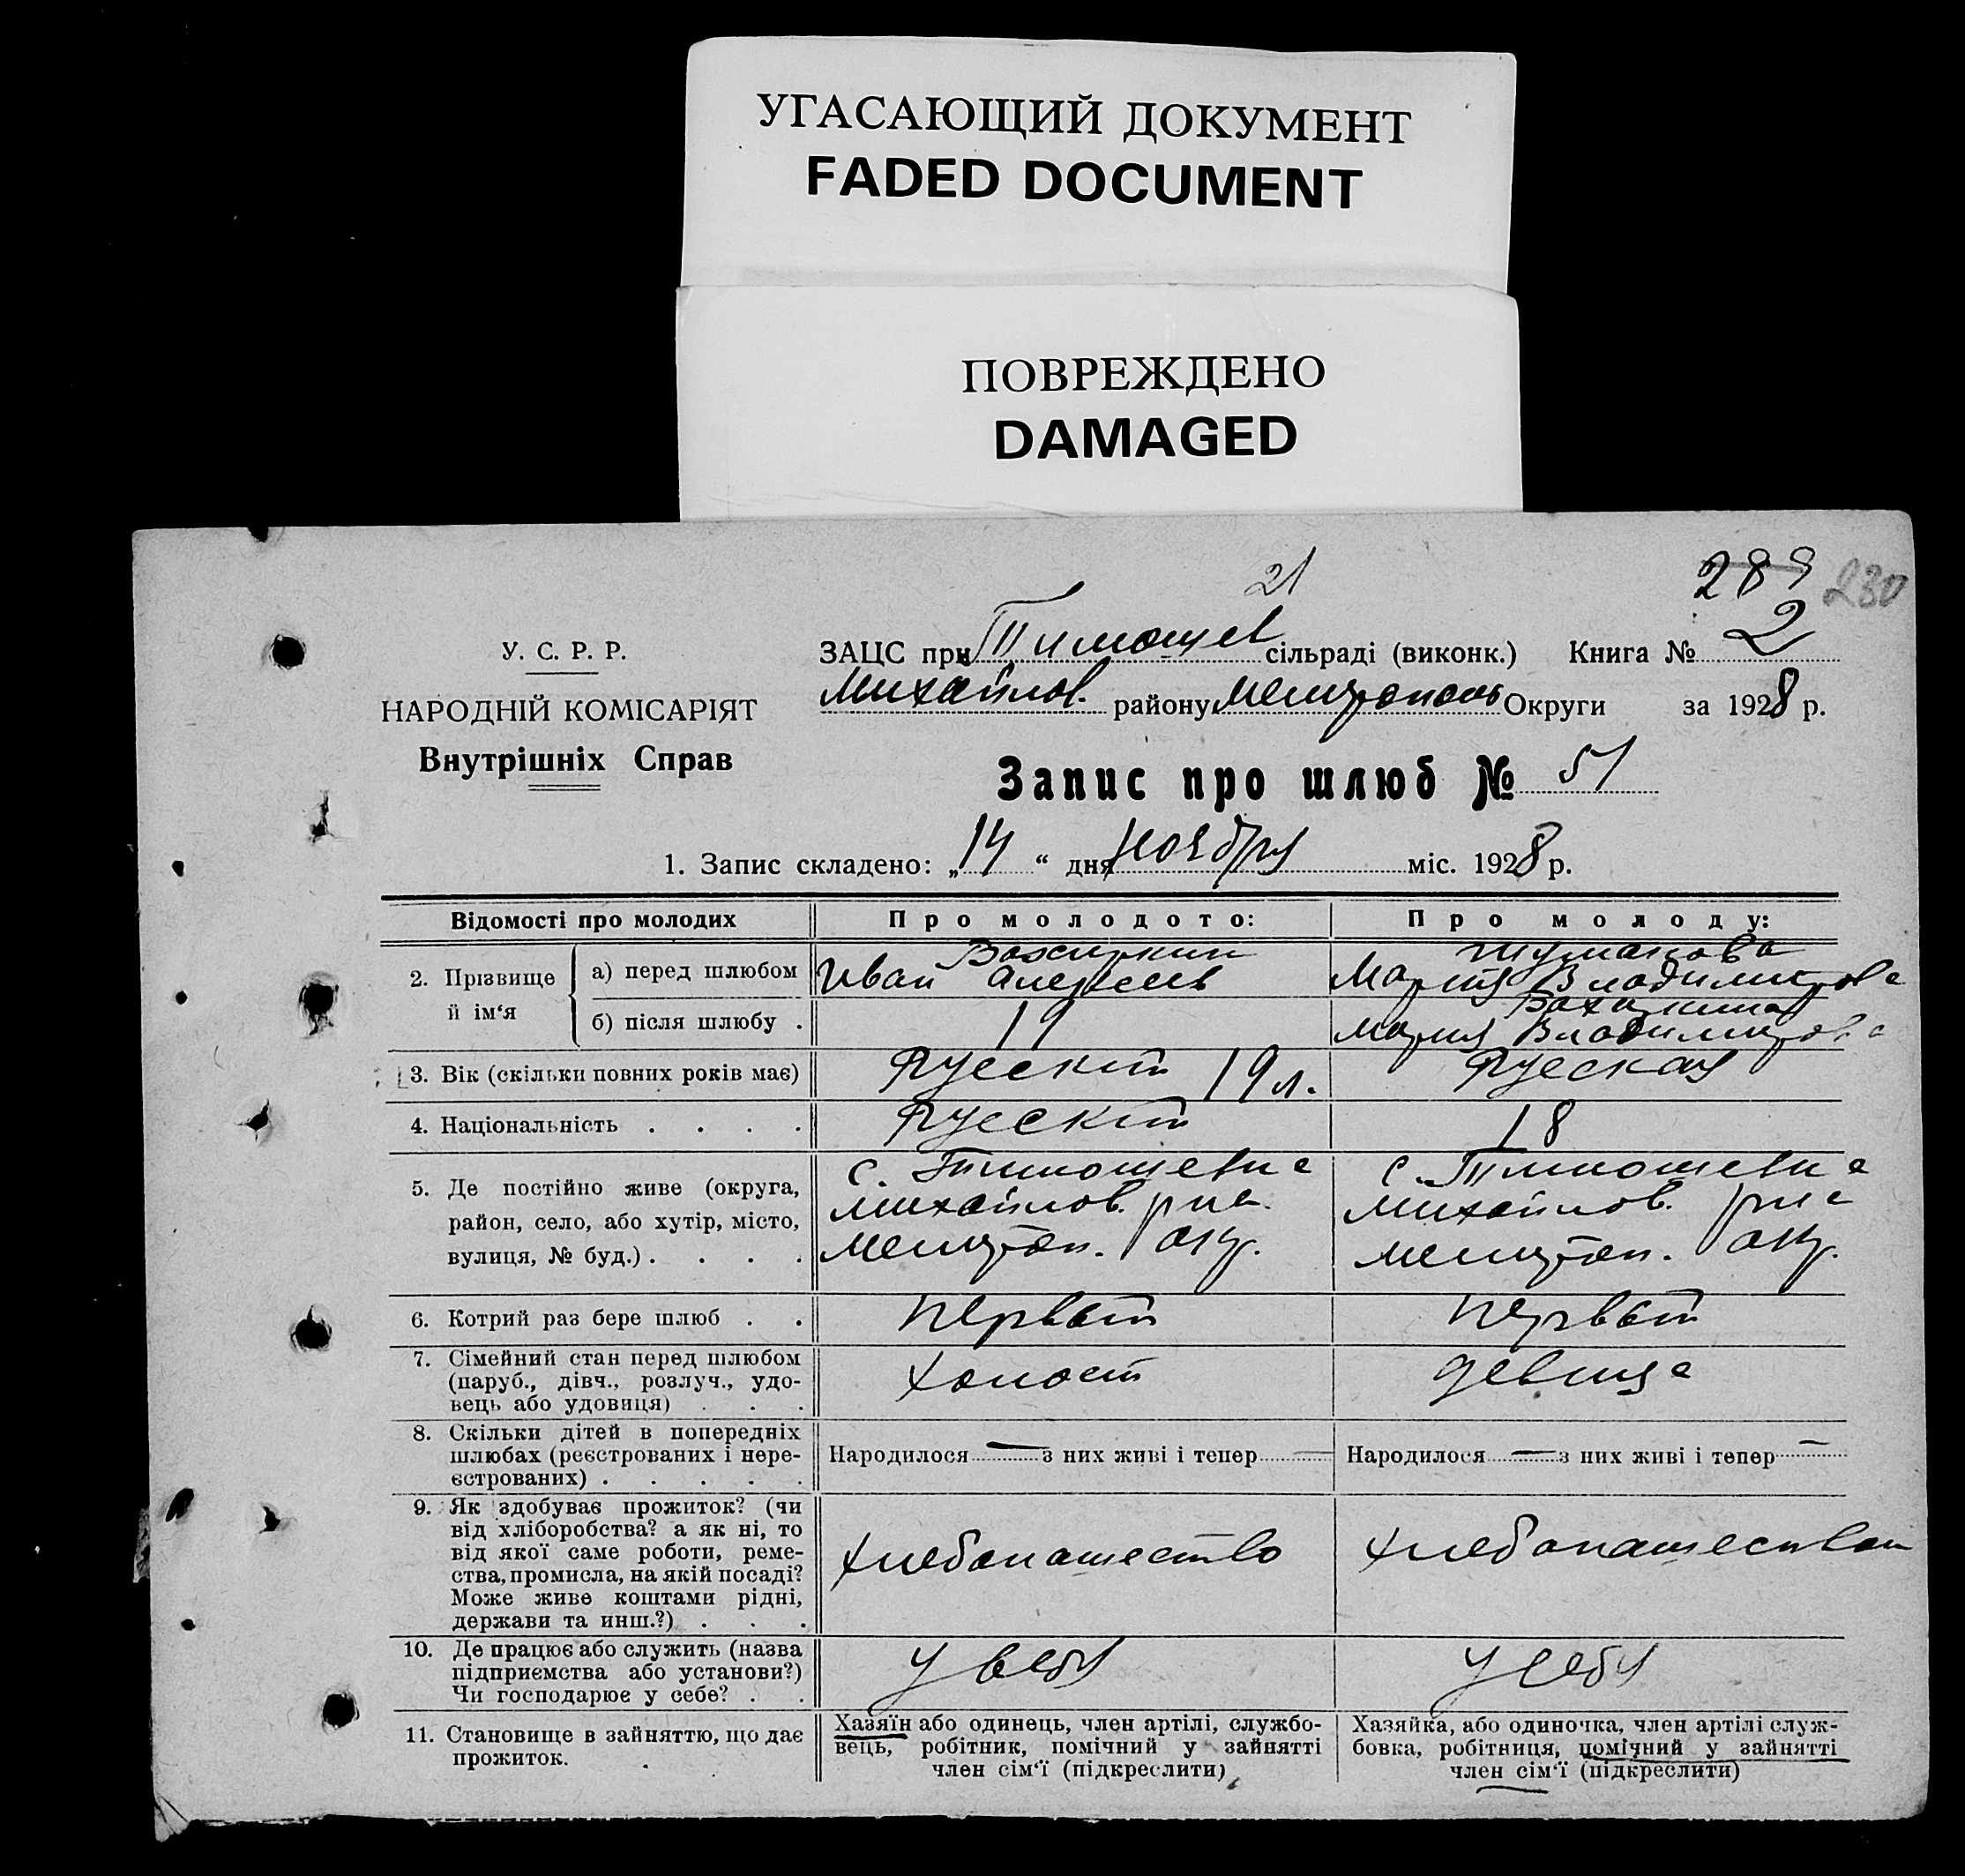 УГАСАЮЩИЙ ДОКУМЕНТ
FADED DOCUMENT
ПОВРЕЖДЕНО
DAMAGED
21
289 230
У. С. Р. Р.
НАРОДНІЙ КОМІСАРІЯТ
Внутрішніх Справ
ЗАЦС при Тимошев сільраді (виконк.) Книга № 2
Михайлов. району Мелитополь Округи за 1928 р.
Запис про шлюб № 51
1. Запис складено: „14“ дня ноября міс. 1928 р.
Відомості про молодих
Про молодого:
Про молоду:
2. Прізвище й ім‘я
а) перед шлюбом
Иван Алексеев
Мария Владимирова
б) після шлюбу .
19
Мария Владимирова
3. Вік (скільки повних років має)
Русский 19 л.
Русская
4. Національність . . . .
Русский
18
5. Де постійно живе (округа,
район, село, або хутір, місто,
вулиця, № буд.) . . . .
с. Тимошевка
Михайлов. р-на
Мелитоп. окр.
с. Тимошевка
Михайлов. р-на
Мелитоп. окр.
6. Котрий раз бере шлюб . .
первый
первый
7. Сімейний стан перед шлюбом
(паруб., дівч., розлуч., удо-
вець або удовиця) . . .
холост
девица
8. Скільки дітей в попередніх
шлюбах (реєстрованих і нере-
єстрованих) . . . . .
Народилося — з них живі і тепер —
Народилося — з них живі і тепер —
9. Як здобуває прожиток? (чи
від хліборобства? а як ні, то
від якої саме роботи, реме-
ства, промисла, на якій посаді?
Може живе коштами рідні,
держави та инш.?) . . .
хлебопашество
хлебопашеством
10. Де працює або служить (назва
підприємства або установи?)
Чи господарює у себе? . .
у себя
у себя
11. Становище в зайняттю, що дає
прожиток.
Хазяїн або одинець, член артілі, службо-
вець, робітник, помічний у зайнятті
член сім‘ї (підкреслити)
Хазяйка, або одиночка, член артілі служ-
бовка, робітниця, помічний у зайнятті
член сім‘ї (підкреслити)